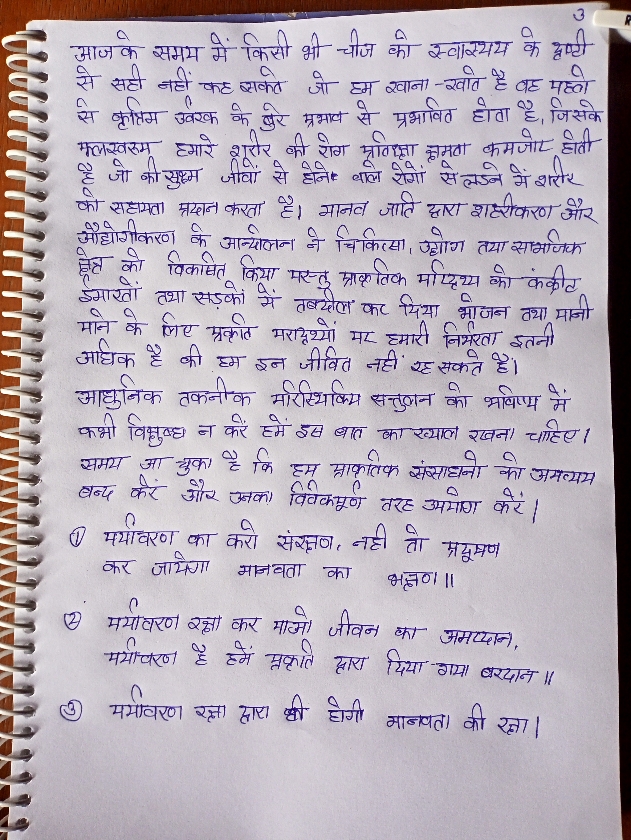 3
आज के समय में किसी भी चीज को स्वास्थय के दृष्टी
से सही नहीं कह सकते जो हम खाना-खाते है वह पहले
से कृतिम उर्वरक के बुरे प्रभाव से प्रभावित होता है, जिसके
फलस्वरूप हमारे शरीर की रोग प्रतिक्षा क्षमता कमजोर होती
है जो की सुक्ष्म जीवों से होने वाले रोगों से लडने में शरीर
को सहायता प्रदान करता है। मानव जाति द्वारा शहरीकरण और
औद्योगीकरण के आन्दोलन ने चिकित्सा, उद्योग तथा सामाजिक
क्षेत्र को विकासित किया परन्तु प्राकृतिक परिदृश्य को कंक्रीट
ईमारतों तथा सड़कों में तबदील कर दिया भोजन तथा पानी
पीने के लिए प्रकृति परादृश्यों पर हमारी निर्भरता इतनी
अधिक है की हम इन जीवित नहीं रह सकते हैं।
आधुनिक तकनीक पारिस्थिकिय सन्तुलन को भविष्य में
कभी विक्षुब्ध न करें हमें इस बात का ख्याल रखना चाहिए।
समय आ चुका है कि हम प्राकृतिक संसाधनो का अपव्यय
बन्द करें और उनका विवेकपूर्ण तरह उपयोग करें।
① पर्यावरण का करो संरक्षण, नही तो प्रदूषण
कर जायेगा मानवता का भक्षण॥
② पर्यावरण रक्षा कर पाओ जीवन का अभयदान,
पर्यावरण है हमें प्रकृति द्वारा दिया गया वरदान॥
③ पर्यावरण रक्षा द्वारा ही होगी मानवता की रक्षा।